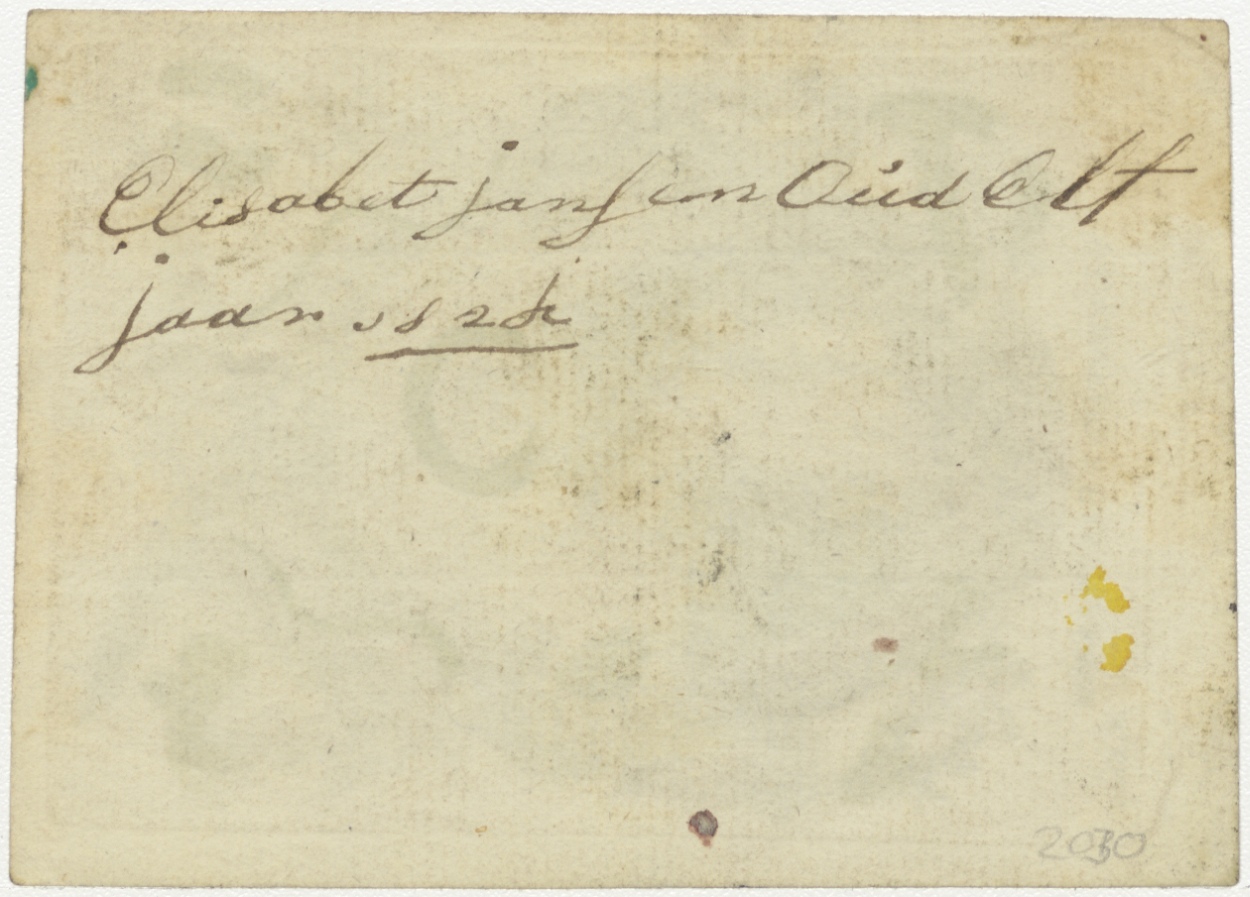 Elisabet jansen Oud Elf
jaar 1824
2030